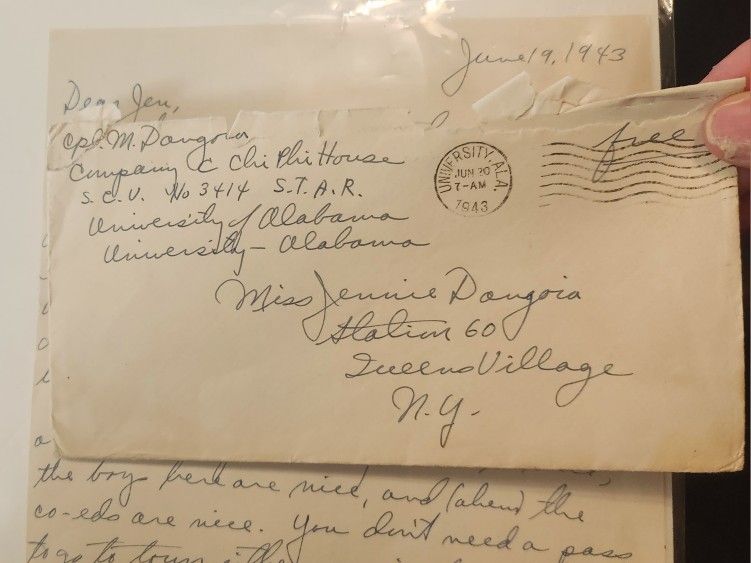 June 19, 1943
Dear Jen,
Cpl. M. Dangoia
Company C Chi Phi House
S.C.U. No 3414 S.T.A.R.
University of Alabama
University - Alabama
UNIVERSITY, ALA.
JUN 20
7-AM
1943
free
Miss Jennie Dangoia
Station 60
Queens Village
N.Y.
the boys here are nice, and (ahem) the
co-eds are nice. You don't need a pass
to go to town